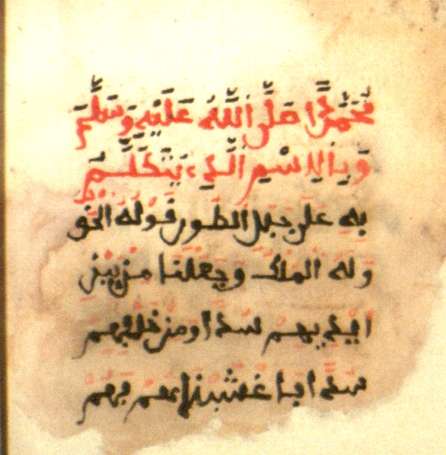 مُحَمَّدًا صَلَّى اللَّهُ عَلَيْهِ وَسَلَّمَ
وَبِالاِسْمِ الَّذِي يَتَكَلَّمُ
به على جبل الطور قوله الحق
وله الملك وجعلنا من بين
ايديهم سدا ومن خلفهم
سدا فاغشيناهم فهم